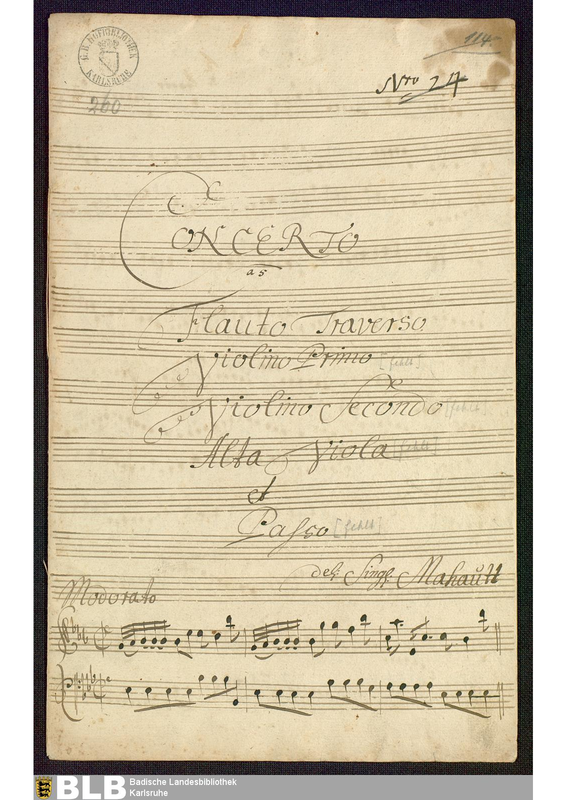 G.H. HOFBIBLIOTHEK
KARLSRUHE
114
Nro 24
260
CONCERTO
a 5
Flauto Traverso
Violino Primo [fehlt]
Violino Secondo [fehlt]
Alta Viola [fehlt]
et
Basso [fehlt]
del Sigr. Mahautt
Moderato
BLB Badische Landesbibliothek
Karlsruhe